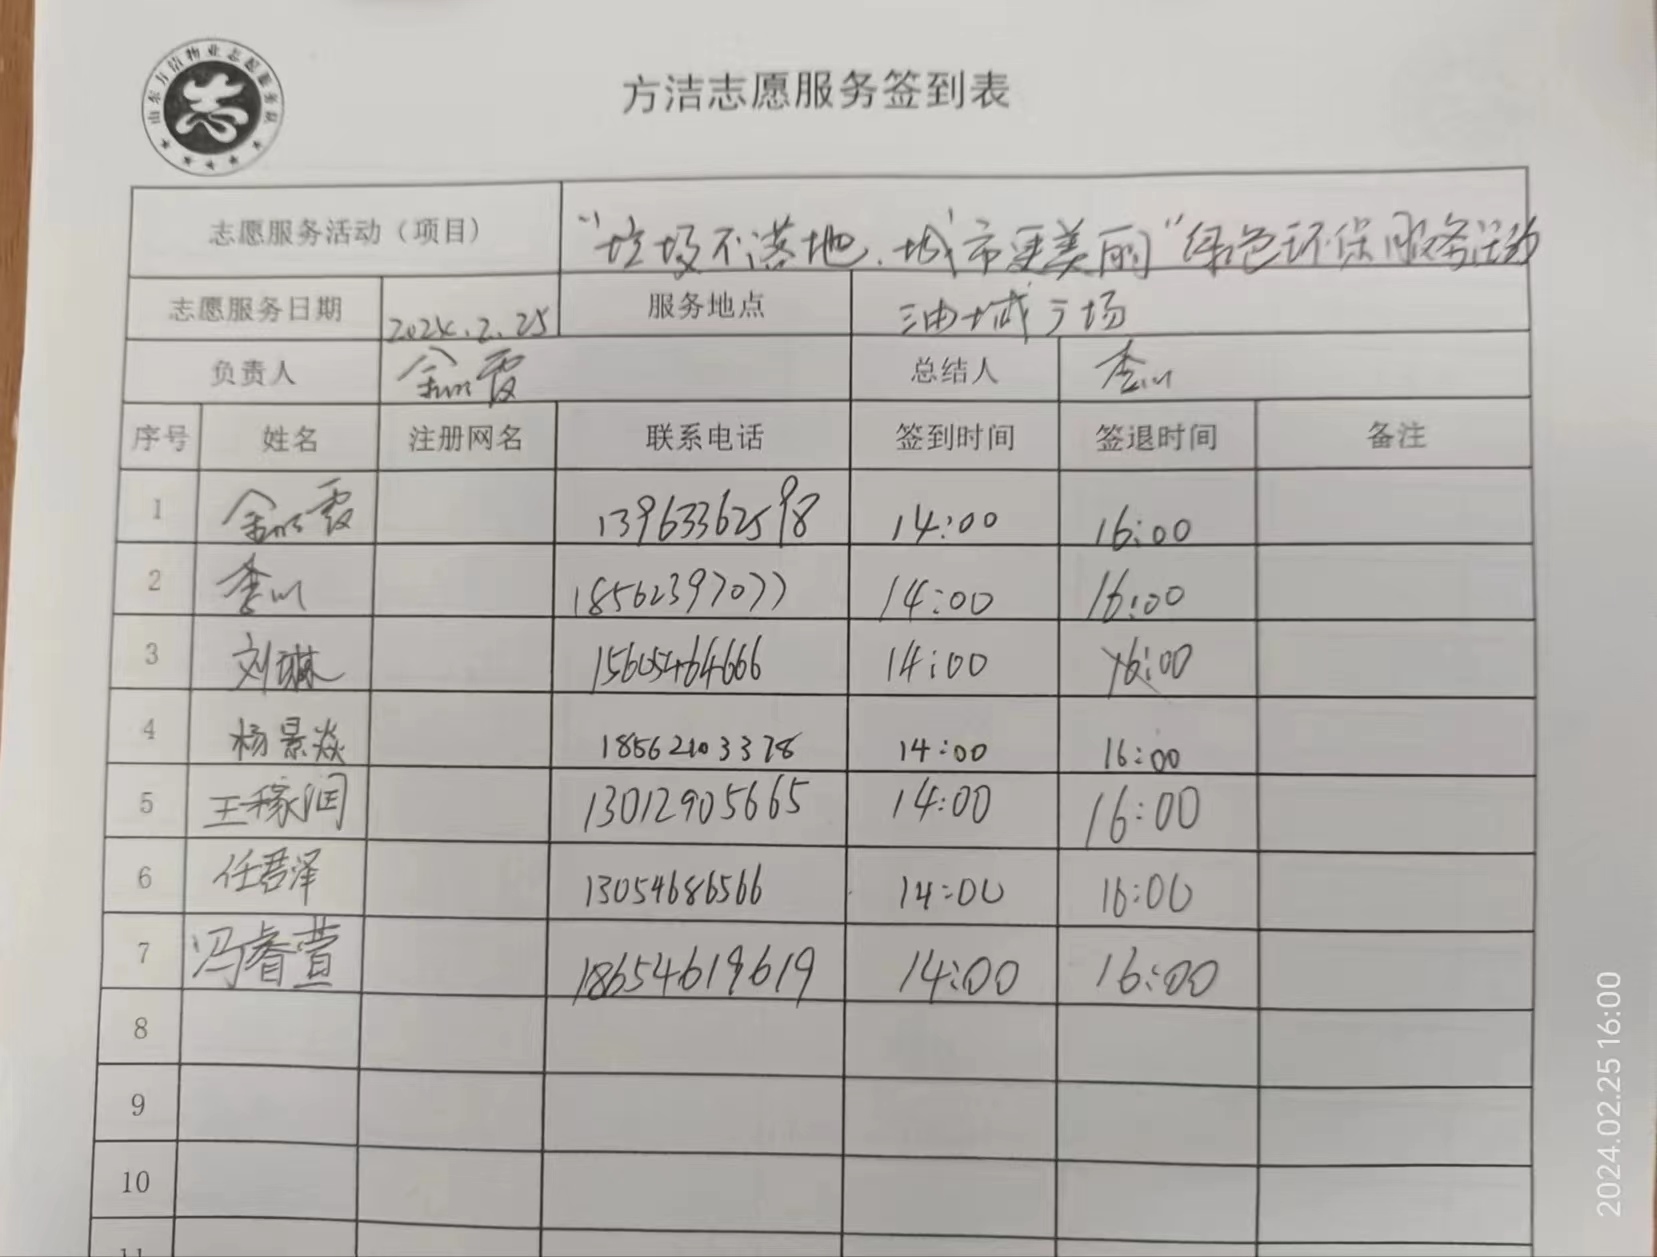 山东方洁物业志愿服务队
志
方洁志愿服务签到表
志愿服务活动（项目） “垃圾不落地、城市更美丽”绿色环保服务活动
志愿服务日期 2024.2.25 服务地点 油城广场
负责人 霞 总结人 李
序号 姓名 注册网名 联系电话 签到时间 签退时间 备注
1 霞 13963362598 14:00 16:00
2 李 18562397077 14:00 16:00
3 刘琳 15605464666 14:00 16:00
4 杨景焱 18562103378 14:00 16:00
5 王稼润 13012905665 14:00 16:00
6 任君泽 13054686566 14:00 16:00
7 冯睿萱 18654619619 14:00 16:00
8
9
10
11
2024.02.25 16:00